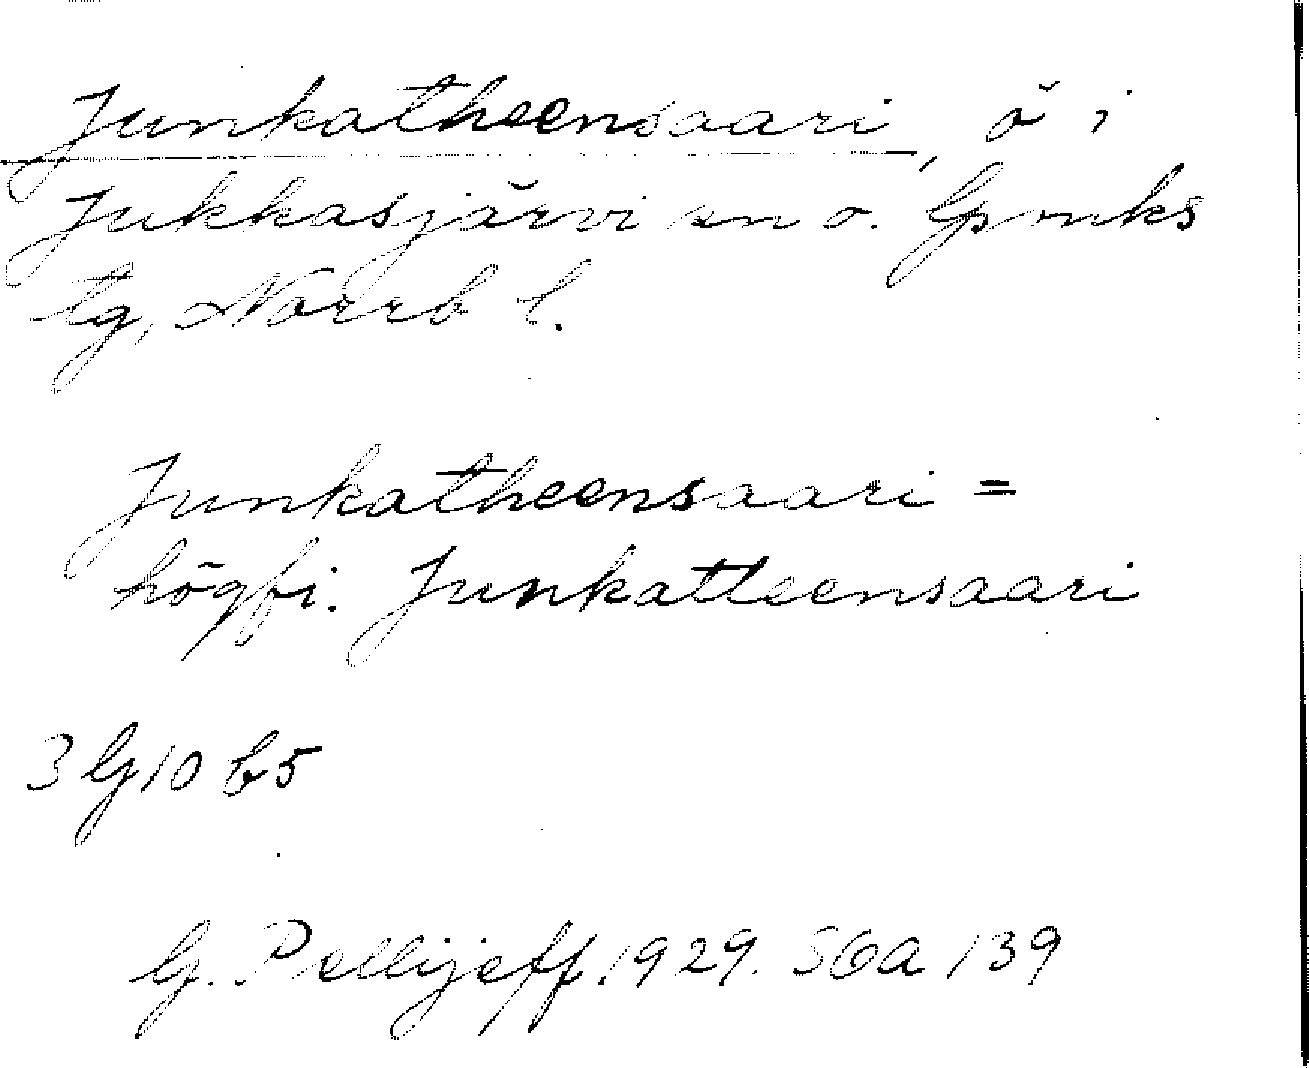 Junkatheensaari, ö i
Jukkasjärvi sn o. Gpmks
lg, Norrb l.
Junkatheensaari =
högfi. Junkatteensaari
3 G 10 b 5
G. Pellijeff. 1929. SOA 139